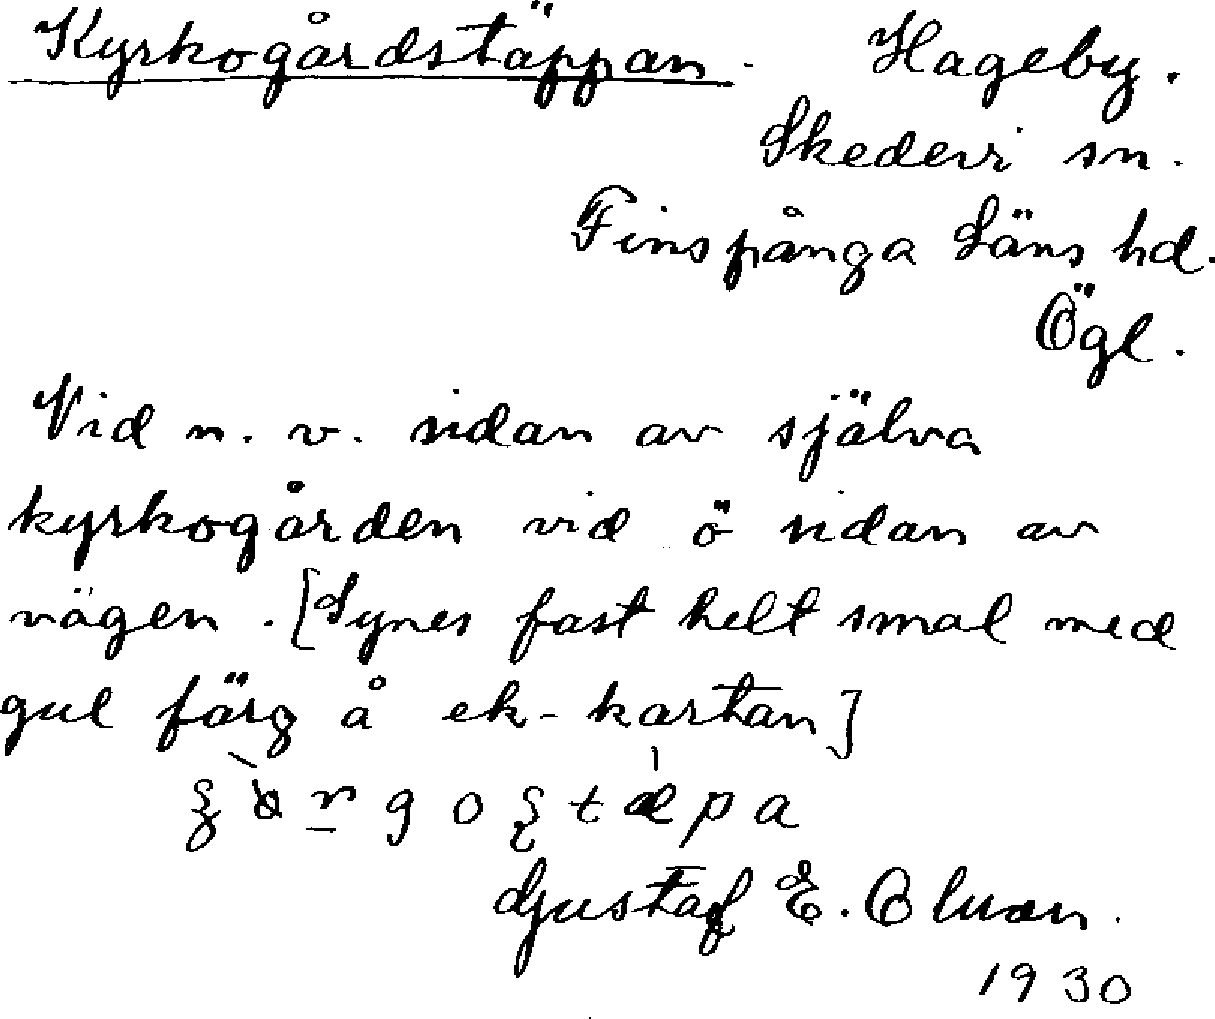 Kyrkogårdstäppan. Hageby.
Skedevi sn.
Finspånga Läns hd.
Ögl.
Vid n. v. sidan av själva
kyrkogården vid ö sidan av
vägen. [Synes fast helt smal med
gul färg å ek-kartan]
Gustaf E.
1930